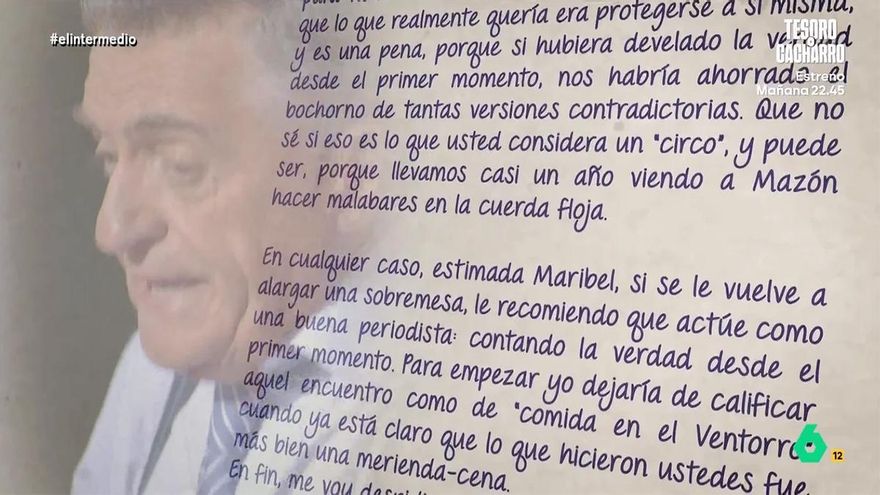 #elintermedio
TESORO
O
CACHARRO
Estreno
Mañana 22.45
que lo que realmente quería era protegerse a sí misma,
y es una pena, porque si hubiera develado la verdad
desde el primer momento, nos habría ahorrado el
bochorno de tantas versiones contradictorias. Que no
sé si eso es lo que usted considera un "circo", y puede
ser, porque llevamos casi un año viendo a Mazón
hacer malabares en la cuerda floja.
En cualquier caso, estimada Maribel, si se le vuelve a
alargar una sobremesa, le recomiendo que actúe como
una buena periodista: contando la verdad desde el
primer momento. Para empezar yo dejaría de calificar
aquel encuentro como de "comida en el Ventorro"
cuando ya está claro que lo que hicieron ustedes fue
más bien una merienda-cena.
En fin, me voy
6
12